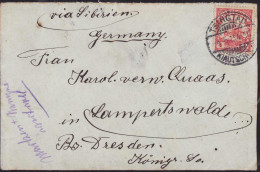 via Sibirien
Germany
TSINGTAU
KIAUTSCHOU
Frau
Karol. verw. Quaas,
in Lampertswalde.
Bz. Dresden.
Königr. Sa.